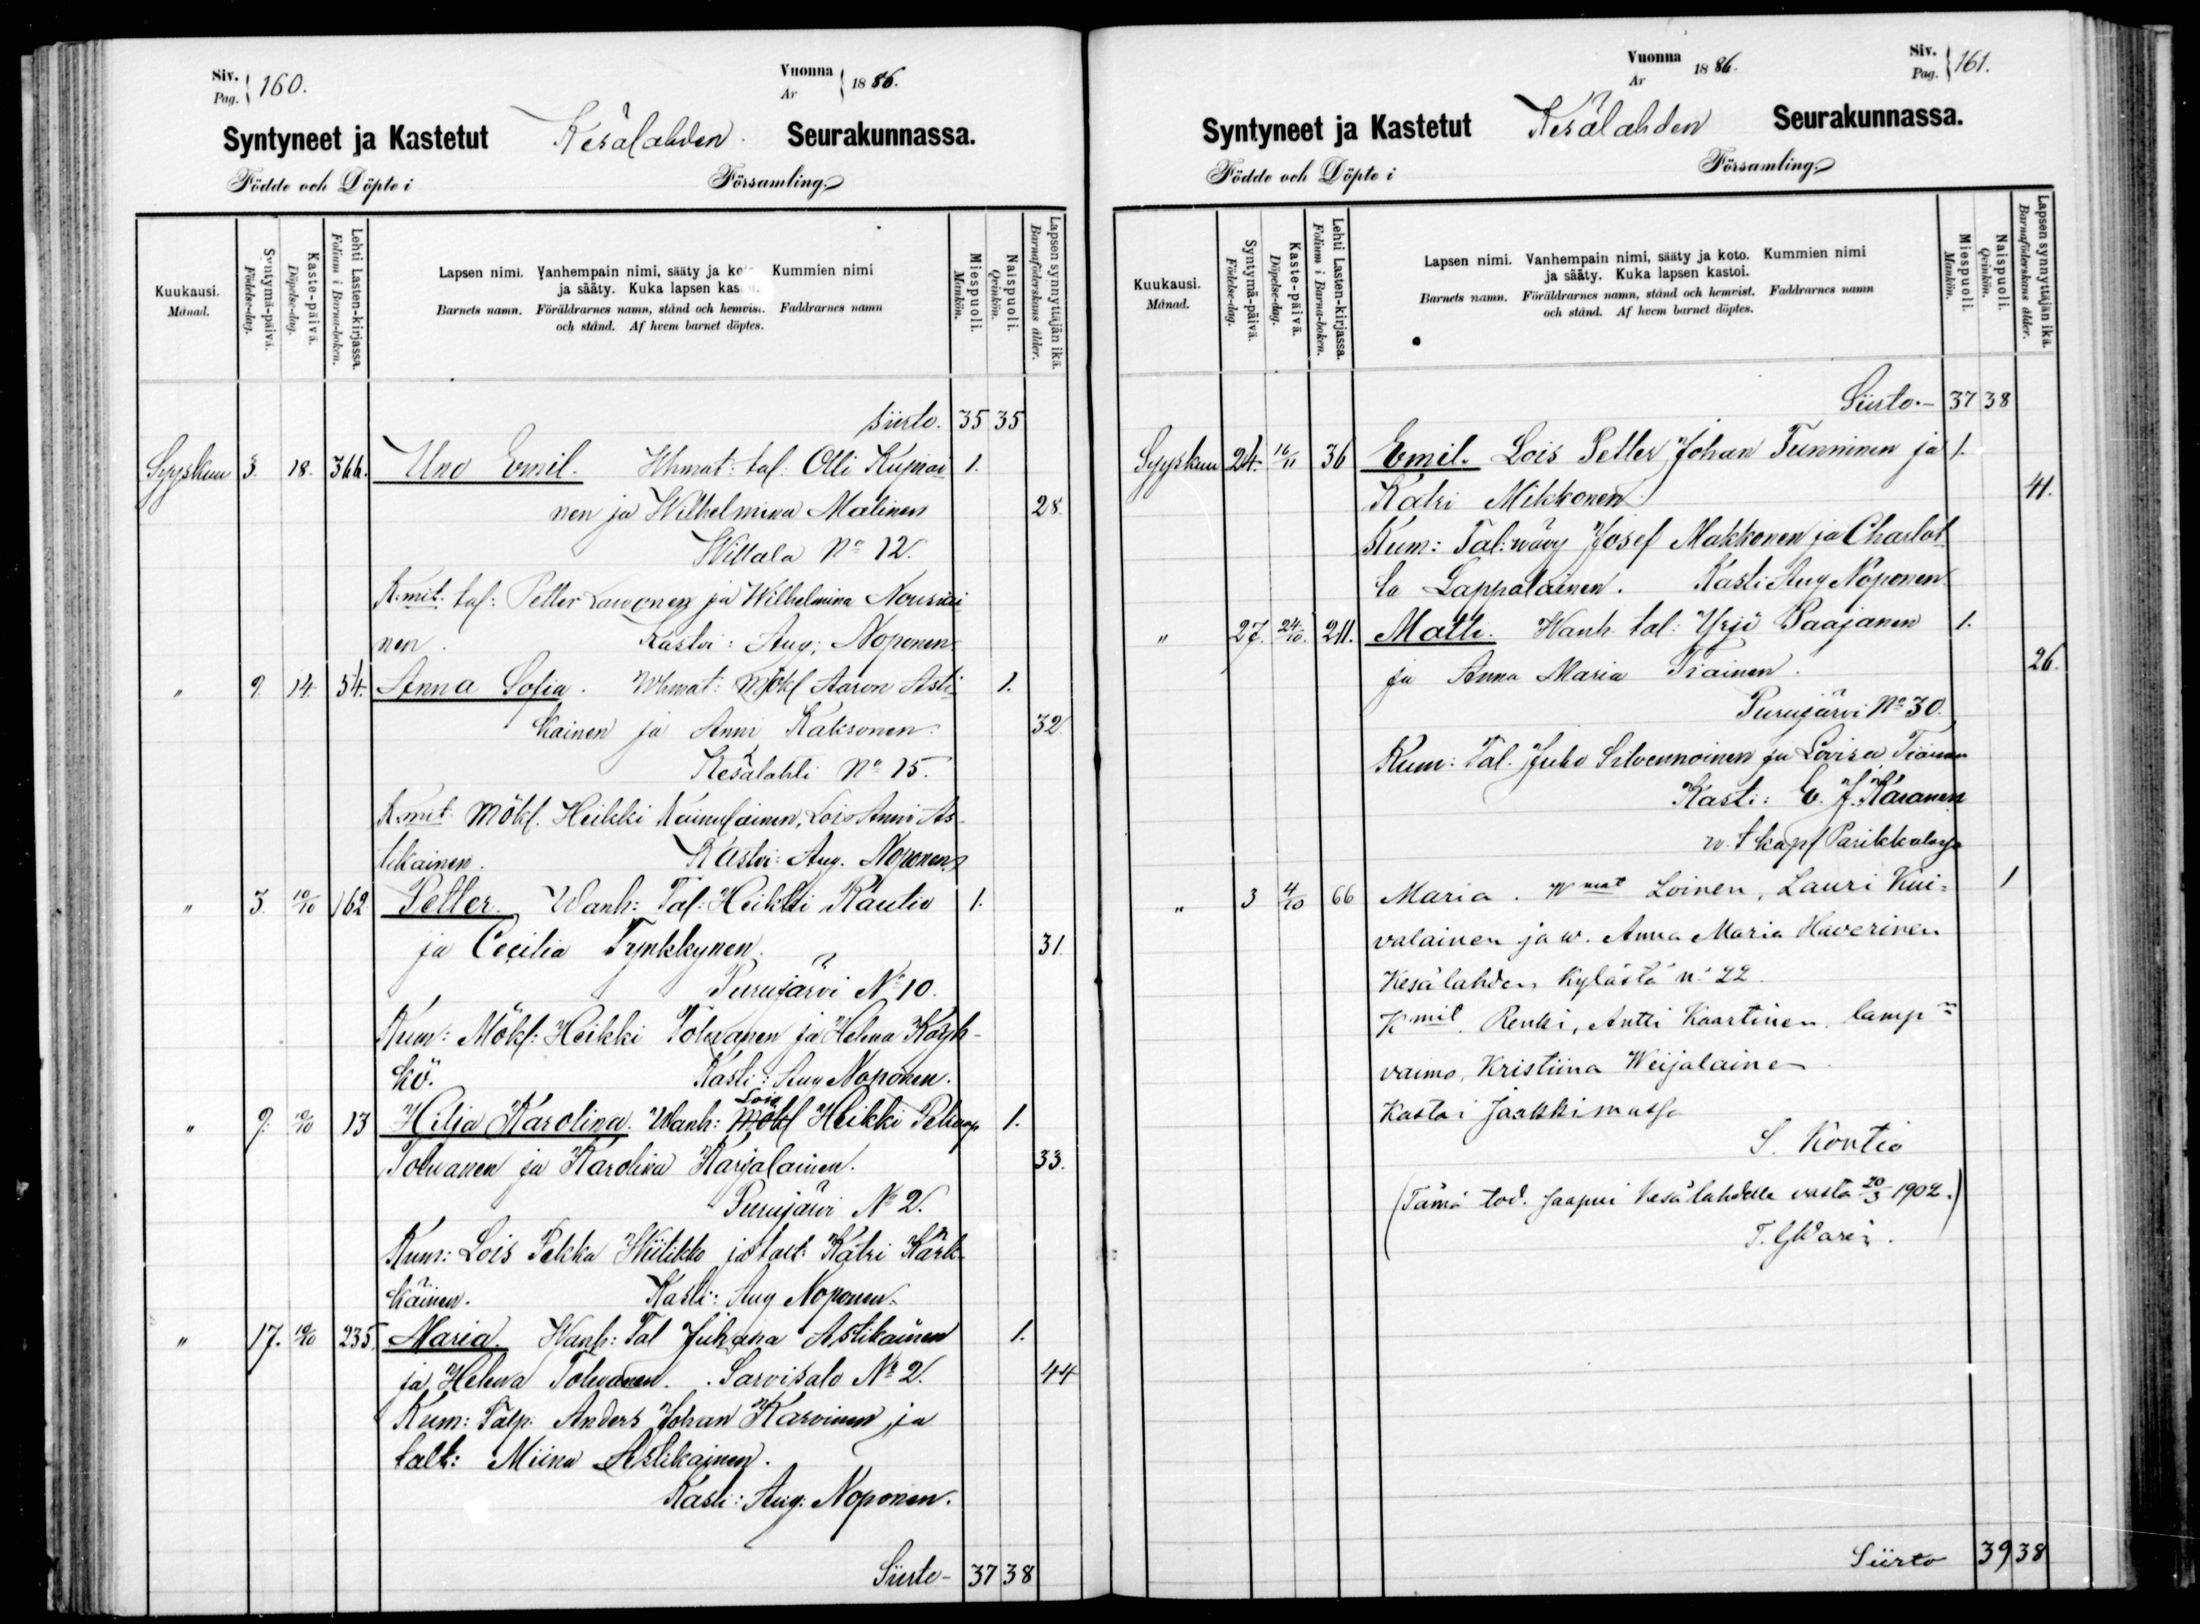 Siv. Pag. 160.
Vuonna Ar 1886.
Syntyneet ja Kastetut Kesälahden Seurakunnassa.
Födde och Döpte i Församling.
Kuukausi. Månad.
Syntymä-päivä. Födelse-dag.
Kaste-päivä. Döpelse-dag.
Lehti Lasten-kirjassa. Folium i Barna-boken.
Lapsen nimi. Vanhempain nimi, sääty ja ko Kummien nimi
ja sääty. Kuka lapsen kastoi.
Barnets namn. Föräldrarnes namn, stånd och hemvist. Faddrarnes namn
och stånd. Af hvem barnet döptes.
Miespuoli. Mankön.
Naispuoli. Qvinkön.
Lapsen synnyttäjän ikä. Barnaföderskans ålder.
Siirto. 35 35
Syyskuu 3. 18. 366. Uno Emil. Whmat: tal. Olli Kupiai 1.
nen ja Wilhelmina Malinen 28
Wittala No 12.
K.mit. tal: Petter ja Wilhelmina Nousiai
nen. Kastoi: Aug; Noponen.
" 9. 14. 54. Anna Sofia. Whmat: Mökl Aaron Asti 1.
kainen ja Anni Kaksonen. 32.
Kesälahti No 15.
K.mit. Mökl. Heikki Kainulainen, Lois Anni As
tikainen. Kastoi: Aug. Noponen.
" 3. 10/10 162 Petter. Wanh: Tal: Heikki Rautio 1.
ja Cecilia Tynkkynen. 31.
Purujärvi No 10.
Kum: Mökl: Heikki Tolwanen ja Helena Köyh-
kö. Kasti: Aug Noponen.
" 9. 10/10 13 Hilja Karolina. Wanh: Mökl Lois Heikki 1.
Tolwanen ja Karolina Karjalainen. 33.
Purujärvi No 2.
Kum: Lois Pekka Hiitikko ja talt: Katri Kärk-
käinen. Kasti: Aug Noponen.
" 17. 10/10 235. Maria. Wanh: Tal Juhana Astikainen 1.
ja Helena Tolwanen. Sarvisalo No 2. 44
Kum: Talp. Anders Johan Karvinen ja
talt: Miina Astikainen.
Kasti: Aug: Noponen.
Siirto- 37 38
Vuonna Ar 1886.
Siv. Pag. 161.
Syntyneet ja Kastetut Kesälahden Seurakunnassa.
Födde och Döpte i Församling.
Kuukausi. Månad.
Syntymä-päivä. Födelse-dag.
Kaste-päivä. Döpelse-dag.
Lehti Lasten-kirjassa. Folium i Barna-boken.
Lapsen nimi. Vanhempain nimi, sääty ja koto. Kummien nimi
ja sääty. Kuka lapsen kastoi.
Barnets namn. Föräldrarnes namn, stånd och hemvist. Faddrarnes namn
och stånd. Af hvem barnet döptes.
Miespuoli. Mankön.
Naispuoli. Qvinkön.
Lapsen synnyttäjän ikä. Barnaföderskans ålder.
Siirto.- 37 38
Syyskuu 24. 16/11 36 Emil. Lois Petter Johan Tunninen ja 1.
Katri Mikkonen. 41.
Kum: Tal: wävy Josef Makkonen ja Charlot
ta Lappalainen. Kasti Aug Noponen
" 27. 24/10. 211. Matti. Wanh. tal: Yrjö Paajanen 1.
ja Anna Maria Tiainen. 26.
Purujärvi No 30.
Kum: Tal. Juho Silvennoinen ja Lovisa Tiainen
Kasti: E. J. Käranen
Parikkalasja
" 3 4/10 66 Maria. Wmat Loinen, Lauri Kui- 1
valainen ja w. Anna Maria Haverinen
Kesälahden Kylästä n: 22.
Kmit. Renki, Antti Kaartinen, lamp:n
vaimo, Kristiina Weijalainen
Kastoi Jaakkimassa
S. Kontio
(Tämä tod. saapui Kesälahdelle vasta 20/3 1902.)
Siirto 39 38